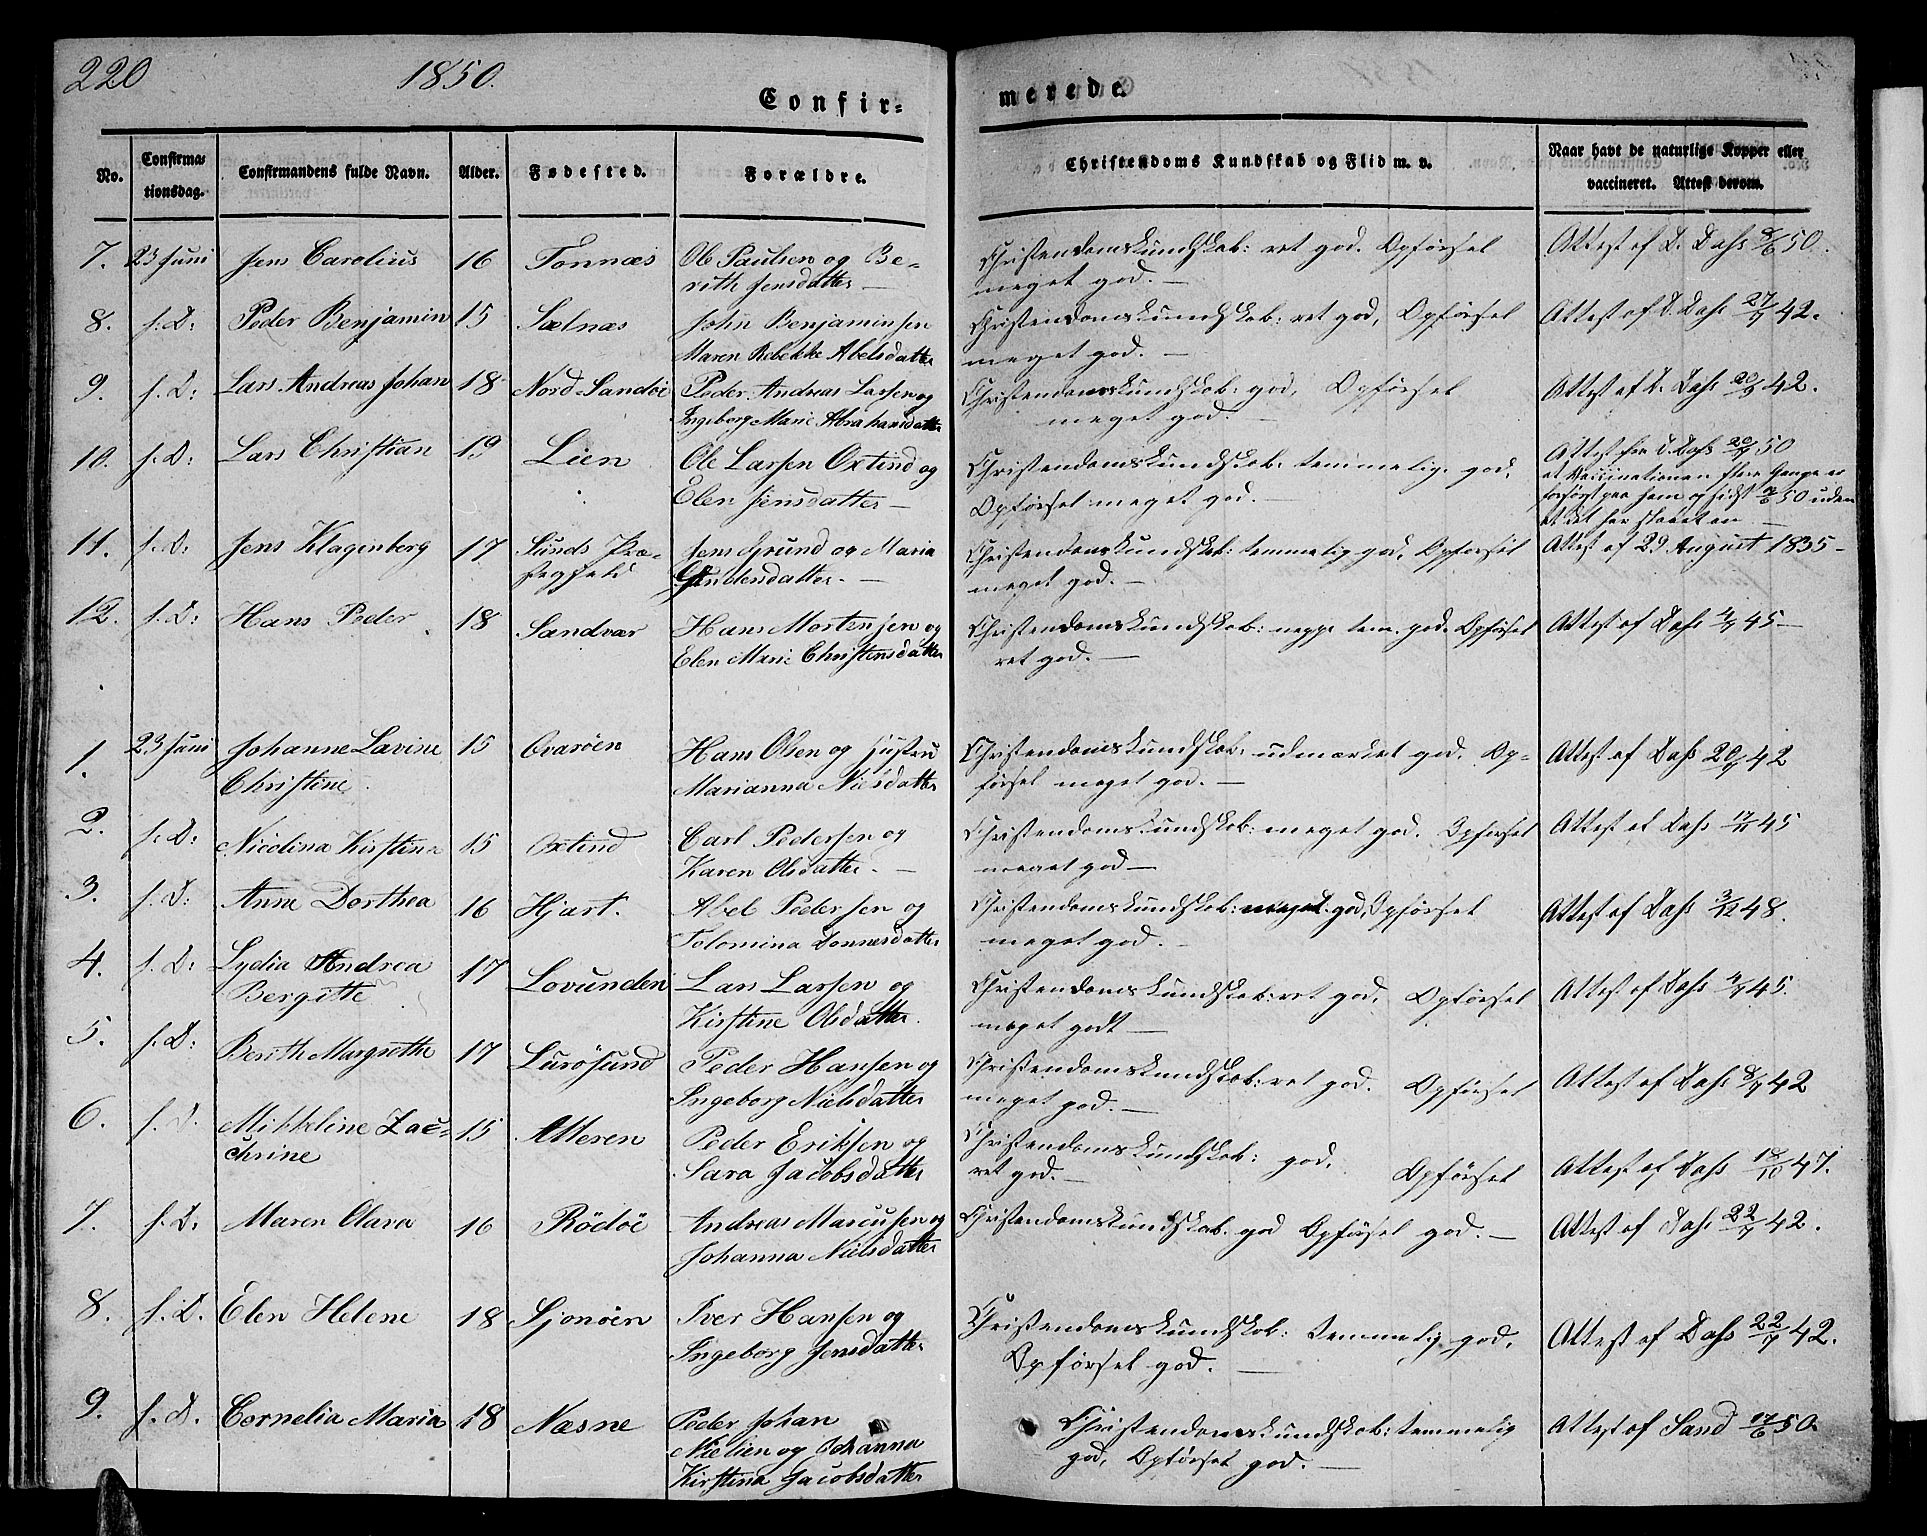 220 1850.
Confir-
merede.
No.
Confirma-
tionsdag.
Confirmandens fulde Navn.
Alder.
Fødested.
Forældre.
Christendoms Kundskab og Flid m. v.
Naar havt de naturlige Kopper eller
vaccineret. Attest derom.
7. 23 Juni Jens Carolius 16 Tonnæs Ole Paulsen og Be-
rith Jensdatter —
Christendomskundskab: ret god. Opførsel
meget god. —
Attest af D. Dahs 50.
8. s. D: Peder Benjamin 15 Sælnæs John Benjaminsen
Maren Rebekke Abelsdatter
Christendomskundskab: ret god, Opførsel
meget god. —
Attest af D. Dahs 27/7 42.
9. s. D: Lars Andreas Johan 18 Nord-Sandøe Peder Andreas Larsen og
Ingeborg Marie Abrahamsdatter
Christendomskundskab: god, Opførsel
meget god. —
Attest af D. Dahs 42.
10. s. D: Lars Christian 19 Lien Ole Larsen Oxtind og
Elen Jensdatter —
Christendomskundskab: temmelig god.
Opførsel meget god. —
Attest fra D. Dahs 50
at Vaccinationen flere Gange er
forsøgt paa ham og sidst 50 uden
at det har slaaet an. —
11. s. D: Jens Klagenberg 17 Sunds Præ-
stegjeld
Jens Grund og Maria
—
Christendomskundskab: temmelig god, Opførsel
meget god. —
Attest af 29 August 1835 —
12. s. D: Hans Peder 18 Sandvær Hans Mortensen og
Elen Marie Christensdatter
Christendomskundskab: neppe tem. god. Opførsel
ret god. —
Attest af Dahs 45 —
1. 23 Juni Johanne Lavine
Christine
15 Qvarøen Hans Olsen og Hustru
Marianna Nielsdatter
Christendomskundskab: udmærket god. Op-
førsel meget god. —
Attest af Dahs 42
2. s. D: Nicolina Kirstina 15 Oxtind Carl Pedersen og
Karen Olsdatter. —
Christendomskundskab: meget god. Opførsel
meget god —
Attest af Dahs 45
3. s. D: Anne Dorthea 16 Hjart. Abel Pedersen og
Tolomina Tonnesdatter
Christendomskundskab: meget god, Opførsel
meget god. —
Attest af Dahs 3/12 48.
4. s. D: Lydia Andrea
Bergitte
17 Lovunden Lars Larsen og
Kirstine Olsdatter.
Christendomskundskab: ret god, Opførsel
meget godt —
Attest af Dahs 45.
5. s. D: Berith Margrethe 17 Lurøsund Peder Hansen og
Ingeborg Nielsdatter
Christendomskundskab: ret god. Opførsel
meget god. —
Attest af Dahs 42
6. s. D. Mikkeline Zac-
chrine
15 Alteren Peder Eriksen og
Sara Jacobsdatter
Christendomskundskab: god. Opførsel
ret god. —
Attest af Dahs 18/10 47.
7. s. D: Maren Olava 16 Rødøe Andreas Marcusen og
Johanna Nielsdatter
Christendomskundskab. god Opførsel god. —
Attest af Dahs 22/7 42.
8. s. D. Elen Helene 18 Sjonøen Iver Hansen og
Ingeborg Jensdatter
Christendomskundskab: temmelig god.
Opførsel god. —
Attest af Dahs 22/7 42.
9. s. D. Cornelia Maria 18 Næsne Peder Johan
Nielsen og Johanna
Kirstina Jacobsdatter
Christendomskundskab: temmelig
god, Opførsel god. —
Attest af Sand 17/6 50.